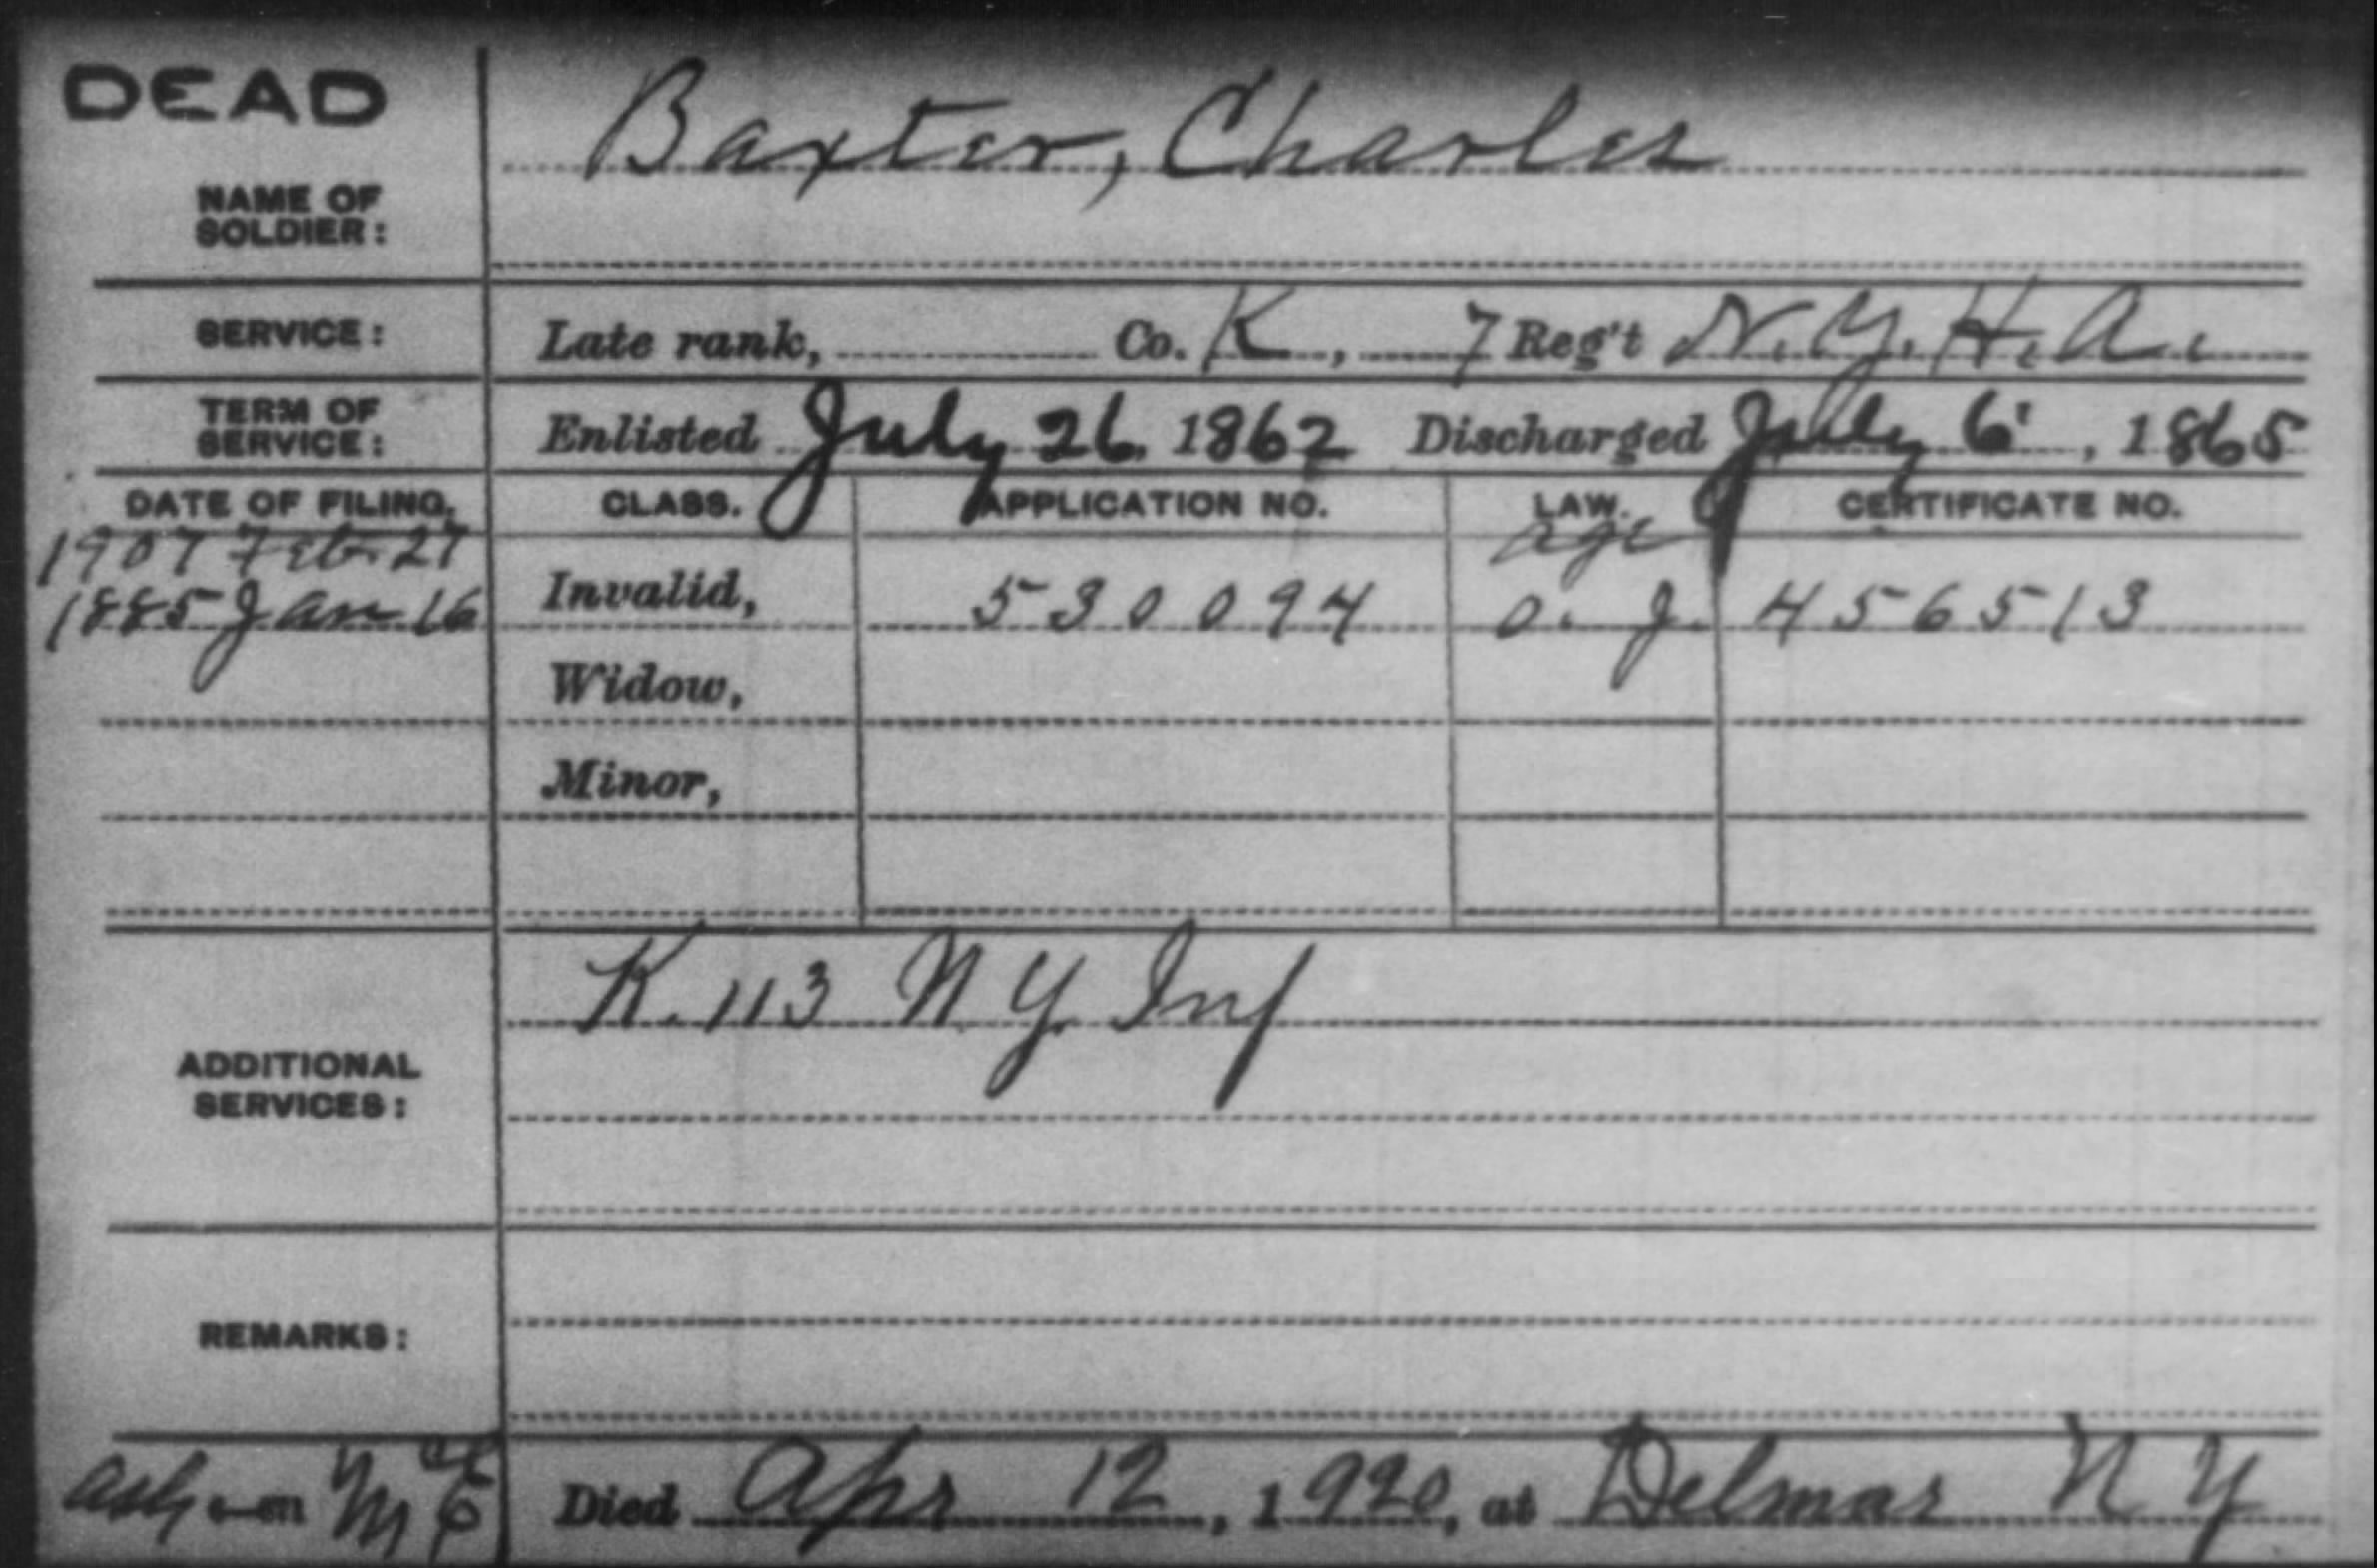 DEAD
Baxter, Charles
NAME OF
SOLDIER:
SERVICE: Late rank, Co. K, 7 Reg't N.Y.H.A.
TERM OF
SERVICE: Enlisted July 26, 1862 Discharged July 6, 1865
DATE OF FILING. CLASS. APPLICATION NO. LAW. CERTIFICATE NO.
1907 Feb. 27 age
1885 Jan 16 Invalid, 530094 O. J. 456513
Widow,
Minor,
K. 113 N.Y. Inf
ADDITIONAL
SERVICES:
REMARKS:
Died Apr 12, 1920, at Delmar N Y